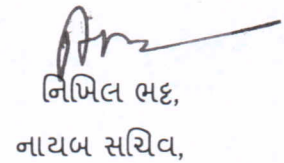 નિખિલ ભટ્ટ,
નાયબ સચિવ,